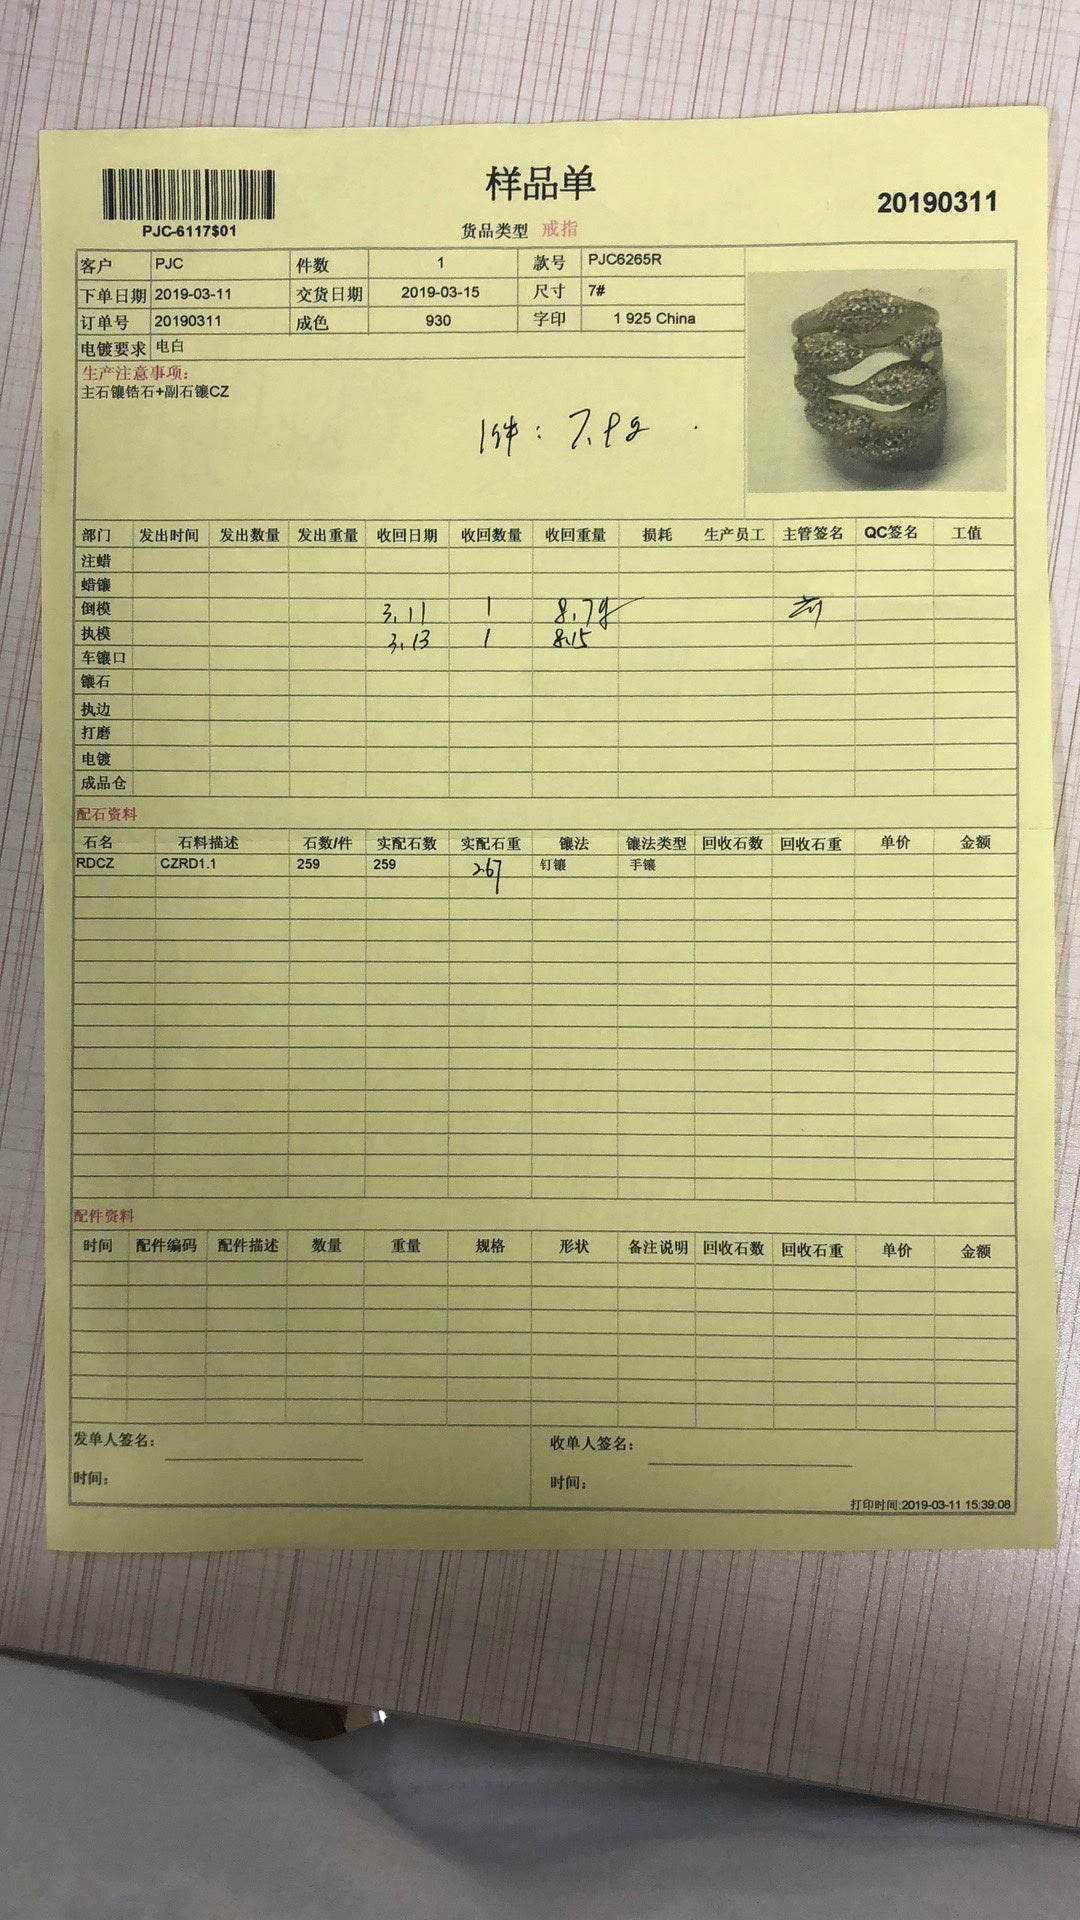 样品单
20190311
PJC-6117$01
货品类型 戒指
客户 PJC 件数 1 款号 PJC6265R
下单日期 2019-03-11 交货日期 2019-03-15 尺寸 7#
订单号 20190311 成色 930 字印 1 925 China
电镀要求 电白
生产注意事项:
主石镶锆石+副石镶CZ
1件: 7.9g
部门 发出时间 发出数量 发出重量 收回日期 收回数量 收回重量 损耗 生产员工 主管签名 QC签名 工值
注蜡
蜡镶
倒模 3.11 1 8.7g
执模 3.13 1 8.15
车镶口
镶石
执边
打磨
电镀
成品仓
配石资料
石名 石料描述 石数/件 实配石数 实配石重 镶法 镶法类型 回收石数 回收石重 单价 金额
RDCZ CZRD1.1 259 259 2.67 钉镶 手镶
配件资料
时间 配件编码 配件描述 数量 重量 规格 形状 备注说明 回收石数 回收石重 单价 金额
发单人签名: 收单人签名:
时间: 时间:
打印时间:2019-03-11 15:39:08